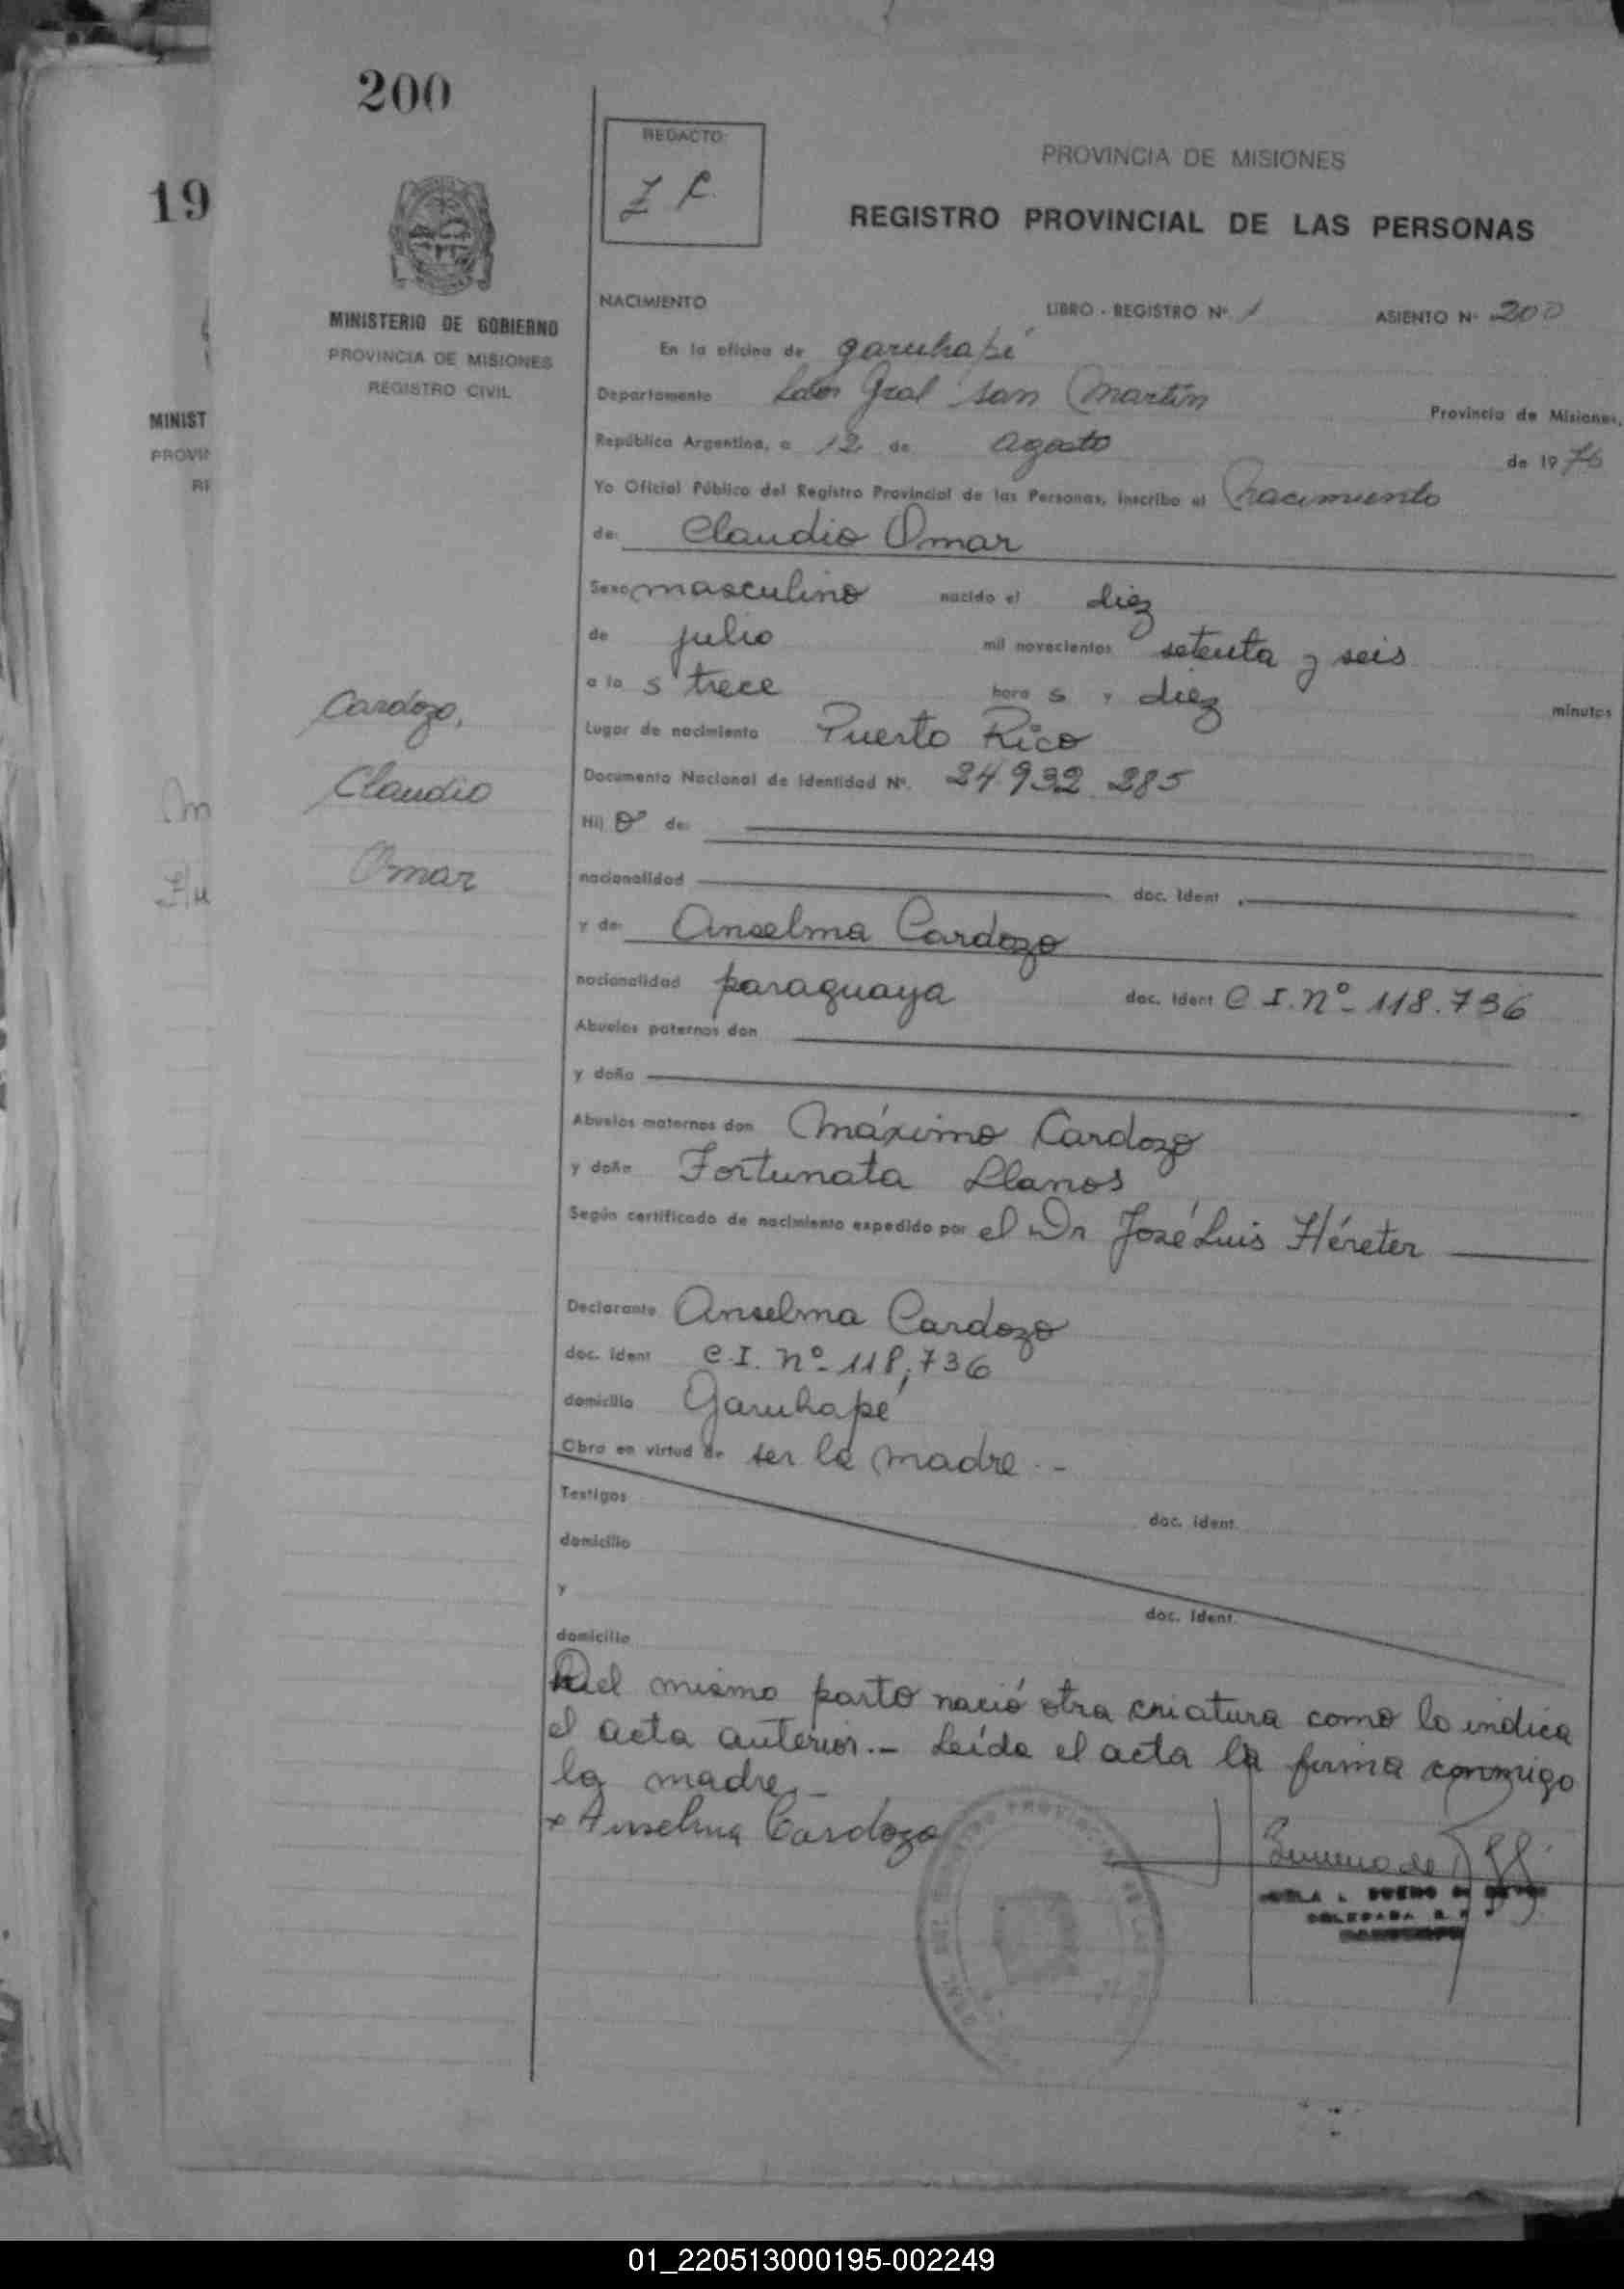 200
REDACTO:
Z F.
PROVINCIA DE MISIONES
19
REGISTRO PROVINCIAL DE LAS PERSONAS
MINISTERIO DE GOBIERNO
PROVINCIA DE MISIONES
REGISTRO CIVIL
MINIST
PROVIN
RE
NACIMIENTO LIBRO - REGISTRO Nº 1 ASIENTO Nº 200
En la oficina de Garuhapé
Departamento Ldor Gral San Martín Provincia de Misiones,
República Argentina, a 12 de agosto de 1976
Yo Oficial Público del Registro Provincial de las Personas, inscribo el nacimiento
de: Claudio Omar
Sexo masculino nacido el diez
de julio mil novecientos setenta y seis
a la s trece hora s y diez minutos
Cardozo,
Claudio
Omar
Lugar de nacimiento Puerto Rico
Documento Nacional de Identidad Nº. 24.932.285
Hij o de:
nacionalidad doc. Ident.
y de: Anselma Cardozo
nacionalidad paraguaya doc. Ident C.I. nº 118.736
Abuelos paternos don
y doña
Abuelos maternos don Máximo Cardozo
y doña Fortunata Llanos
Según certificado de nacimiento expedido por el Dr José Luis Héreter
Declarante Anselma Cardozo
doc. ident C.I. nº 118.736
domicilio Garuhapé
Obra en virtud de ser la madre.-
Testigos doc. ident.
domicilio
y doc. ident.
domicilio
Del mismo parto nació otra criatura como lo indica
el acta anterior.- Leída el acta la firma conmigo
la madre.-
x Anselma Cardozo
01_220513000195-002249